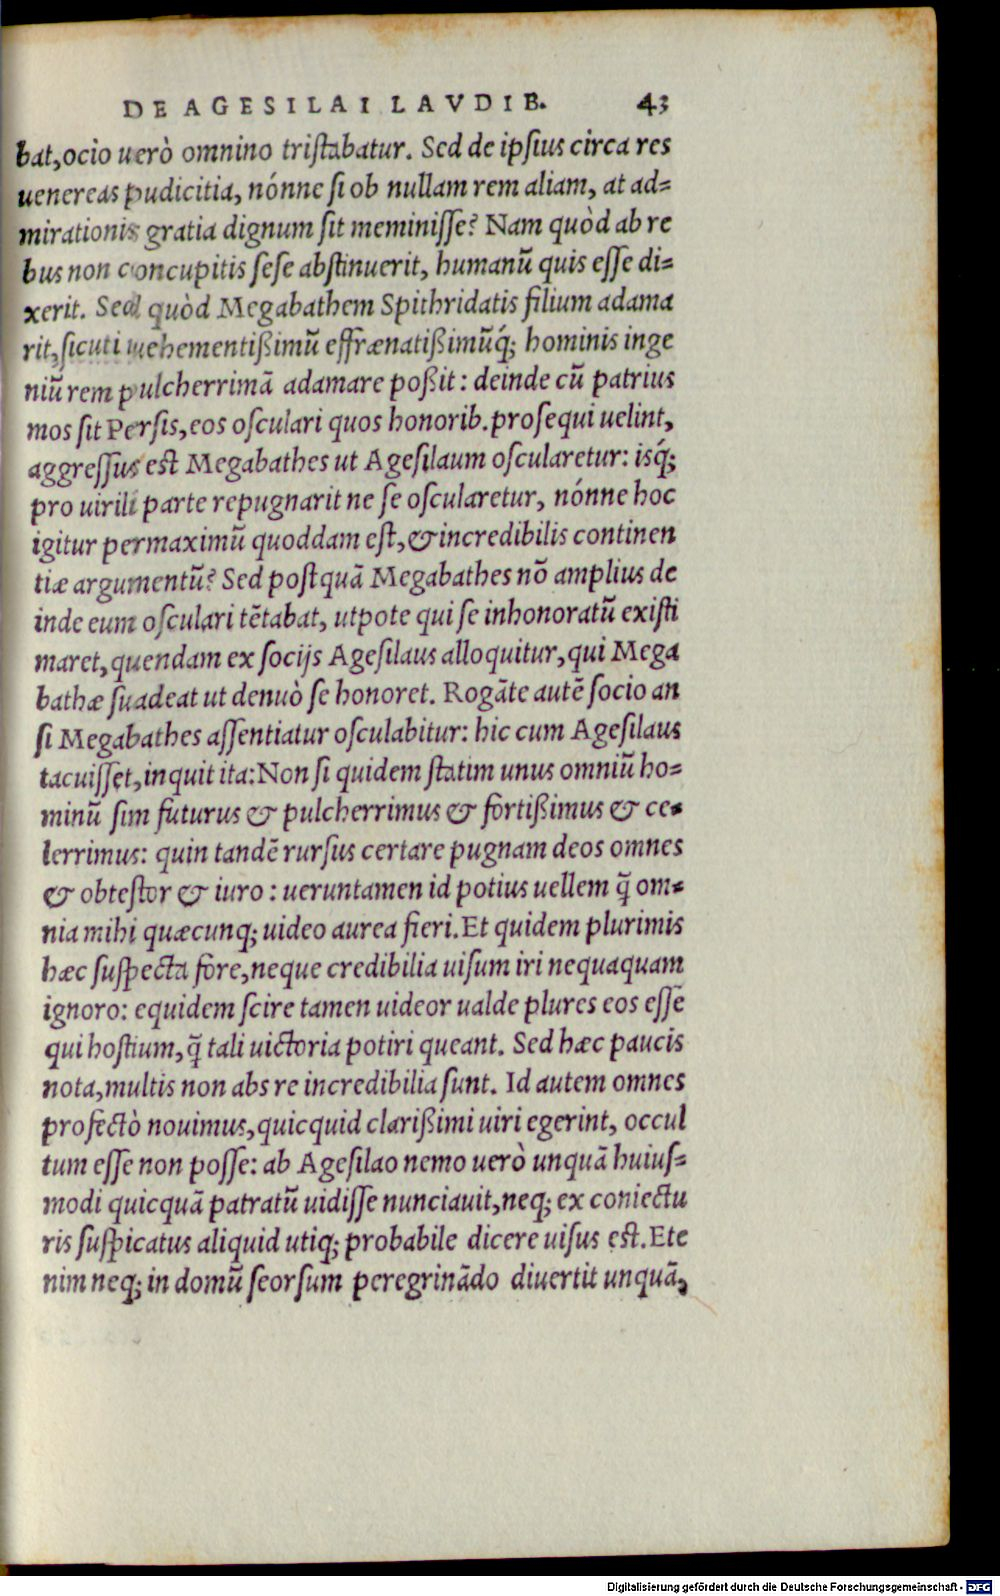 DE AGESILAI LAVDIB. 43
bat,ocio uerò omnino tristabatur. Sed de ipſius circa res
uenereas pudicitia, nónne ſi ob nullam rem aliam, at ad=
mirationis gratia dignum ſit meminiſſe? Nam quòd ab re
bus non concupitis ſeſe abſtinuerit, humanũ quis eſſe di=
xerit. Sed quòd Megabathem Spithridatis filium adama
rit,ſicuti uehementißimũ effrænatißimũq́; hominis inge
niũ rem pulcherrimã adamare poßit: deinde cũ patrius
mos ſit Perſis,eos oſculari quos honorib. proſequi uelint,
aggreſſus eſt Megabathes ut Ageſilaum oſcularetur: isq́;
pro uirili parte repugnarit ne ſe oſcularetur, nónne hoc
igitur permaximũ quoddam eſt, & incredibilis continen
tiæ argumentũ? Sed poſtquã Megabathes nõ amplius de
inde eum oſculari tẽtabat, utpote qui ſe inhonoratũ exiſti
maret,quendam ex ſocijs Ageſilaus alloquitur,qui Mega
bathæ ſuadeat ut denuò ſe honoret. Rogãte autẽ ſocio an
ſi Megabathes aſſentiatur oſculabitur: hic cum Ageſilaus
tacuiſſet,inquit ita:Non ſi quidem ſtatim unus omniũ ho=
minũ ſim futurus & pulcherrimus & fortißimus & ce=
lerrimus: quin tandẽ rurſus certare pugnam deos omnes
& obteſtor & iuro : ueruntamen id potius uellem q̃ om=
nia mihi quæcunq; uideo aurea fieri. Et quidem plurimis
hæc ſuſpecta fore,neque credibilia uiſum iri nequaquam
ignoro: equidem ſcire tamen uideor ualde plures eos eſſe
qui hoſtium,q̃ tali uictoria potiri queant. Sed hæc paucis
nota,multis non abs re incredibilia ſunt. Id autem omnes
profectò nouimus,quicquid clarißimi uiri egerint, occul
tum eſſe non poſſe: ab Ageſilao nemo uerò unquã huiuſ=
modi quicquã patratũ uidiſſe nunciauit,neq; ex coniectu
ris ſuſpicatus aliquid utiq; probabile dicere uiſus eſt. Ete
nim neq; in domũ ſeorſum peregrinãdo diuertit unquã,
Digitalisierung gefördert durch die Deutsche Forschungsgemeinschaft - DFG